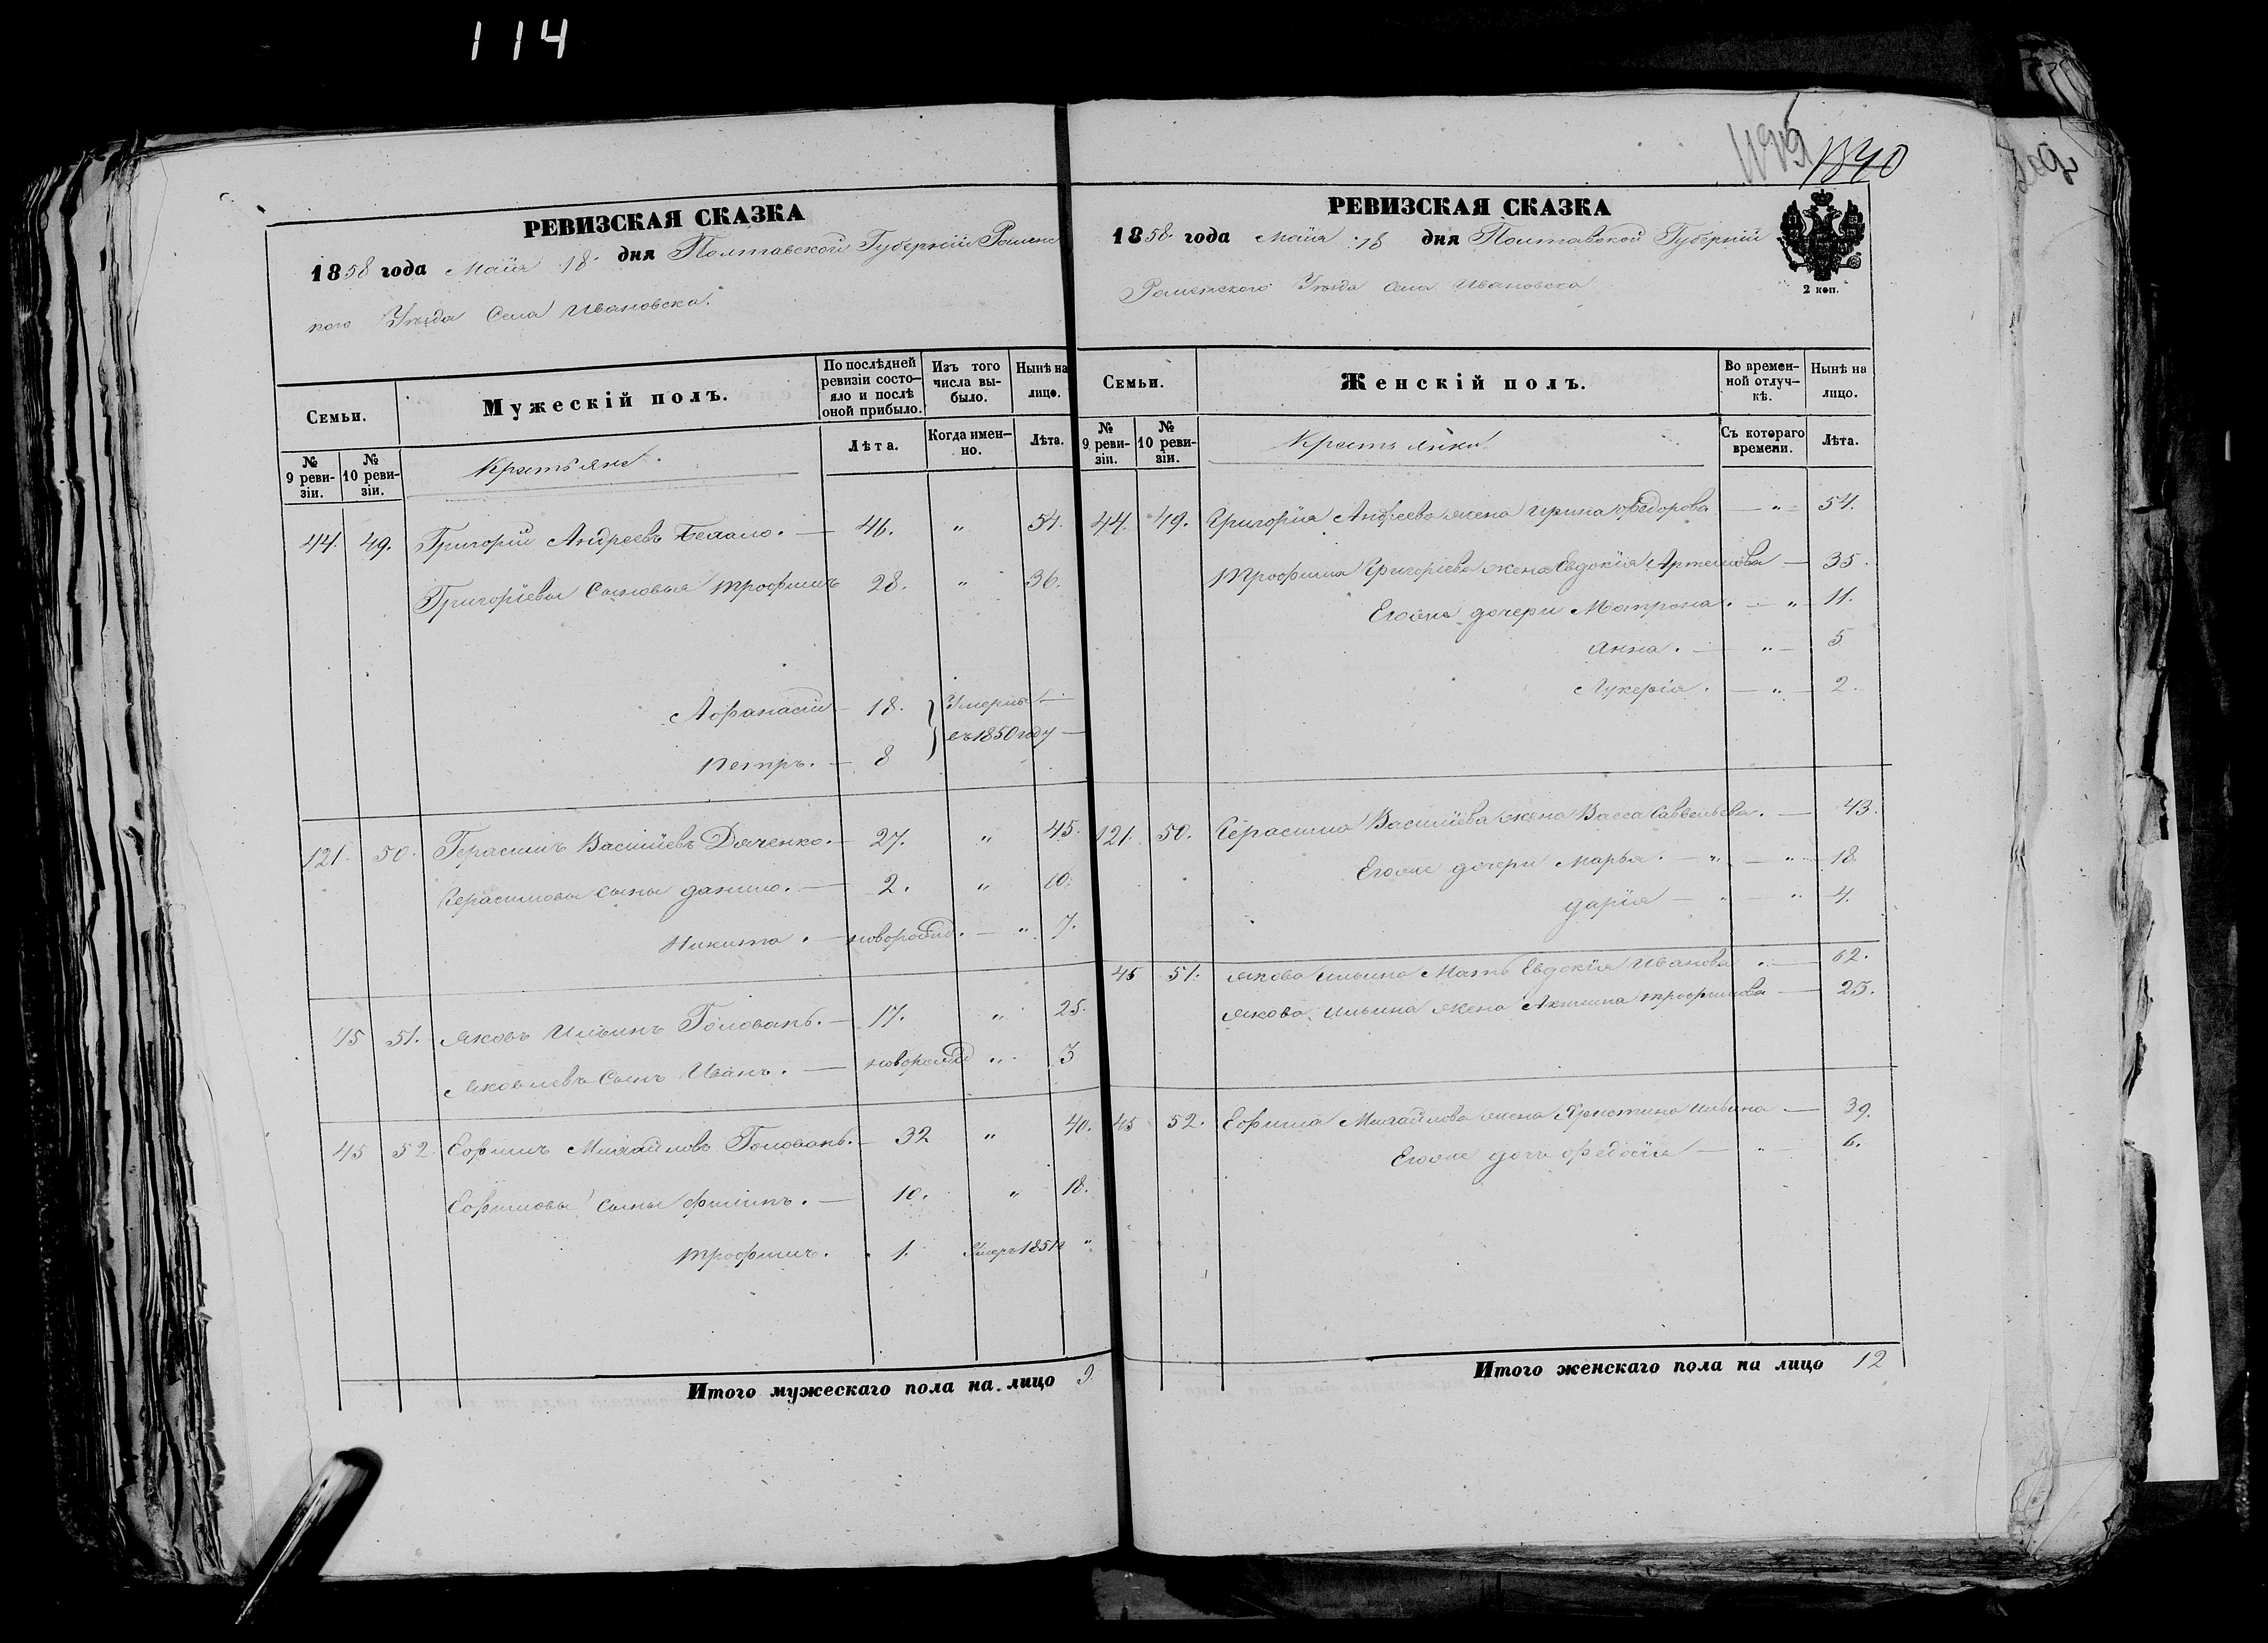 114
1195
1340
РЕВИЗСКАЯ СКАЗКА
1858 года Маія 18. дня Полтавской Губерніи Роменс
кого Уѣзда Села Ивановска.
Семьи.
Мужескій полъ.
По послѣдней ревизіи состо-яло и послѣ оной прибыло.
Изъ того числа вы-было.
Нынѣ на лицо.
№ 9 реви-зіи.
№ 10 реви-зіи.
Крестьяне.
Лѣта.
Когда имен-но.
Лѣта.
44. 49. Григорій Андреевъ — 46. " 54.
Григоріевы Сыновья Трофимъ 28. " 36.
Афанасій — 18. } Умерли —
въ 1850 году —
Петръ. — 8
121. 50. Герасимъ Василіевъ Дяченко. — 27. " 45.
Герасимовы сыны Данило. — 2. " 10.
Никита. — новорожд. — " 7.
45 51. Яковъ Ильинъ Голованъ. — 17. " 25.
Яковлевъ Сынъ Иванъ. — новорожд " 3
45 52 Ефимъ Михайловъ Голованъ. — 32 " 40.
Ефимовы сыны Филипъ. — 10. " 18.
Трофимъ. . 1. Умеръ 1851г "
Итого мужескаго пола на лицо 9
РЕВИЗСКАЯ СКАЗКА
1858. года Маія 18 дня Полтавской Губерніи
Роменского Уѣзда Села Ивановска
2 коп.
Семьи.
Женскій полъ.
Во времен-ной отлуч-кѣ.
Нынѣ на лицо.
№ 9 реви-зіи.
№ 10 реви-зіи.
Крестьянки
Съ котораго времени.
Лѣта.
44. 49. Григорія Андреева жена Ирина Федорова — " — 54.
Трофима Григоріева жена Евдокія Артемова — 35.
Егоже дочери Матрона. — " — 11.
Анна. — " — 5
Лукерія. — " — 2.
121. 50. Герасима Василіева жена Васса Савельева. — 43.
Егоже дочери Марья. — " — " — 18.
Дарія — " — " 4.
45 51. Якова Ильина Мать Евдокія Иванова . — 62.
Якова Ильина жена Акилина Трофимова — 25.
45 52. Ефима Михайлова жена Христина Ильина — 39.
Егоже дочь Федосія — " — 6.
Итого женскаго пола на лицо 12